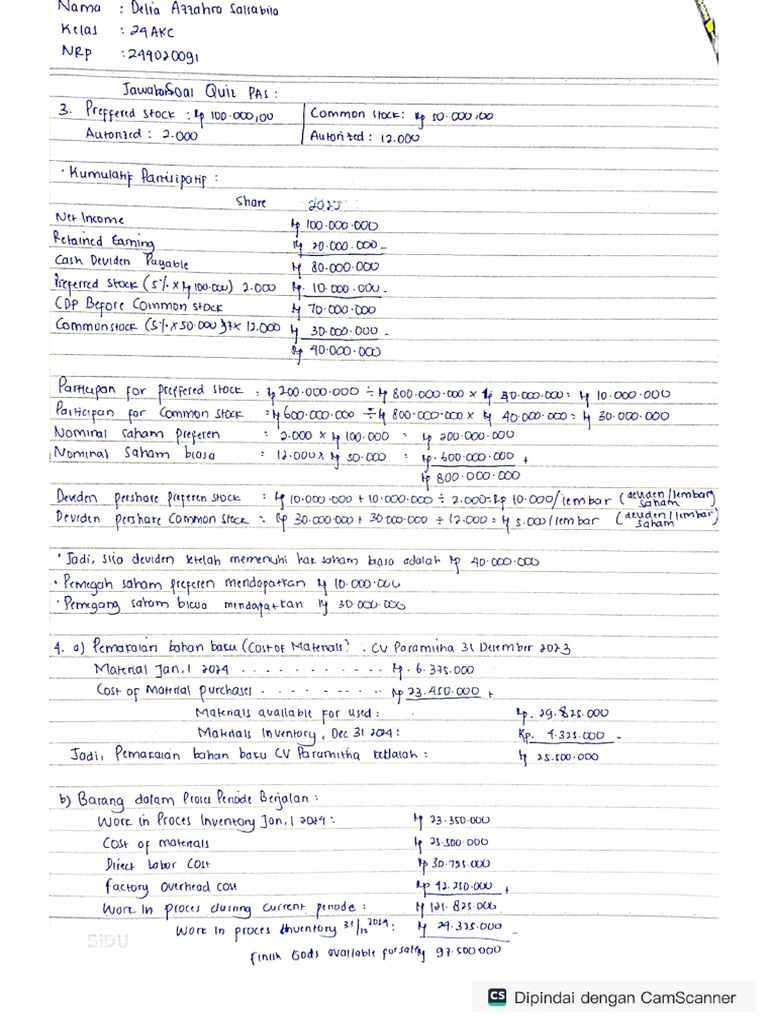 Nama : Delia Azzahra Salsabila
Kelas : 24AKC
NRP : 244020091
Jawaban Soal Quiz PAS :
3. Preffered stock : Rp 100.000,00 Common stock: Rp 50.000,00
Autorized : 2.000 Autorized : 12.000
• Kumulatif Partisipatif :
Share
Net Income Rp 100.000.000
Retained Earning Rp 20.000.000 -
Cash Deviden Payable Rp 80.000.000
Preferred stock (5% x Rp 100.000) 2.000 Rp. 10.000.000 -
CDP Before Common stock Rp 70.000.000
Common stock (5% x 50.000) x 12.000 Rp 30.000.000 -
Rp 40.000.000
Participan for preffered stock : Rp 200.000.000 ÷ Rp 800.000.000 x Rp 40.000.000 = Rp 10.000.000
Participan for Common stock : Rp 600.000.000 ÷ Rp 800.000.000 x Rp 40.000.000 = Rp 30.000.000
Nominal saham preferen : 2.000 x Rp 100.000 = Rp 200.000.000
Nominal saham biasa : 12.000 x Rp 50.000 = Rp. 600.000.000 +
Rp 800.000.000
Deviden pershare preferen stock : Rp 10.000.000 + 10.000.000 ÷ 2.000 = Rp 10.000/lembar (deviden/lembar saham)
Deviden pershare Common stock : Rp 30.000.000 + 30.000.000 ÷ 12.000 = Rp 5.000/lembar (deviden/lembar saham)
• Jadi, sisa deviden setelah memenuhi hak saham biasa adalah Rp 40.000.000
• Pemegah saham preferen mendapatkan Rp 10.000.000
• Pemegang saham biasa mendapatkan Rp 30.000.000
4. a) Pemakaian bahan baku (Cost of Materials) . CV Paramitha 31 Desember 2023
Material Jan, 1 2024 . . . . . . . . . . Rp. 6.375.000
Cost of Material purchases . . . . . . . . Rp 23.450.000 +
Materials available for used : Rp. 29.825.000
Materials Inventory, Dec 31 2024 : Rp. 4.325.000 -
Jadi, Pemakaian bahan baku CV Paramitha adalah : Rp 25.500.000
b) Barang dalam Proses Periode Berjalan :
Work in Proces Inventory Jan, 1 2024 : Rp 23.350.000
Cost of materials Rp 25.500.000
Direct Labor Cost Rp 30.725.000
Factory overhead cost Rp 42.250.000 +
Work In proces during current periode : Rp 121.825.000
Work In proces Inventory 31/12 2024 : Rp 24.325.000 -
Finish Gods available for sale Rp 97.500.000
SiDU
CS Dipindai dengan CamScanner